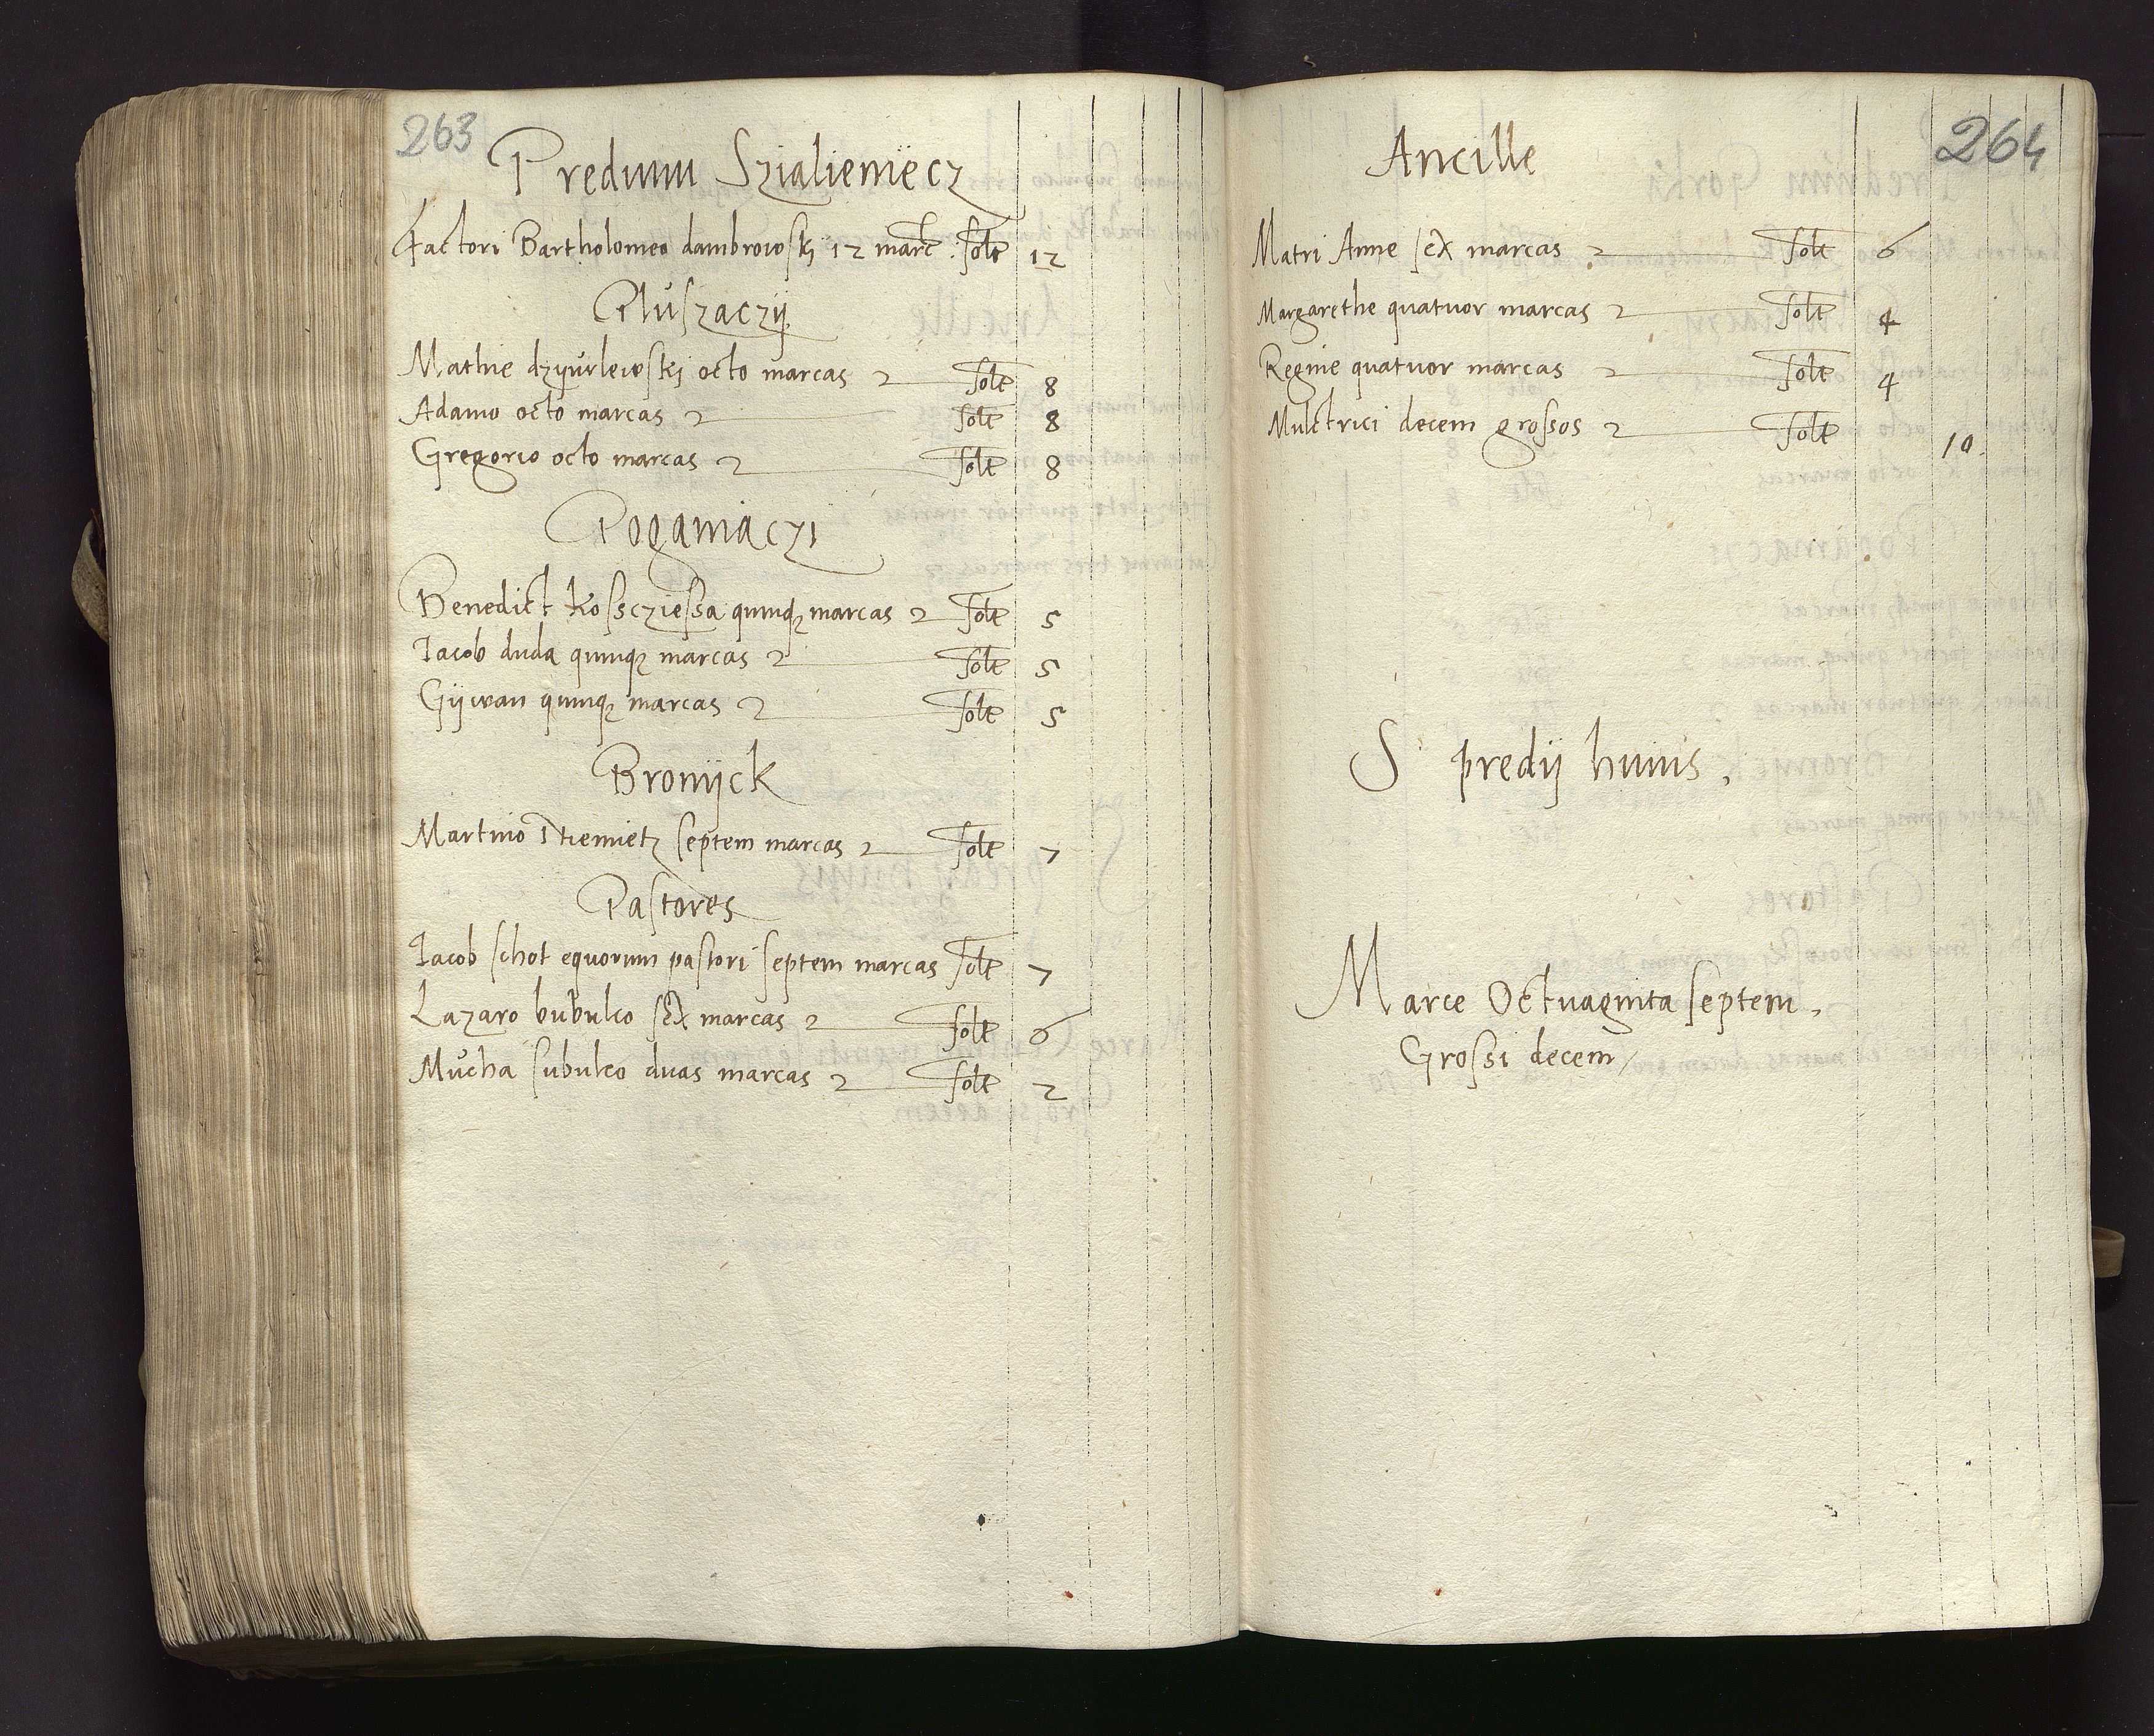 263
Predium Szialieniecz
Factori Bartholomeo dambrowskÿ 12 marc: solt 12
Pluszaczÿ
Mathie dzÿurlewskj octo marcas solt 8
Adamo octo marcas solt 8
Gregorio octo marcas solt 8
Poganiaczi
Benedict kosscziessa quinqꝫ marcas solt 5
Iacob duda quinqꝫ marcas solt 5
Gÿwan quinqꝫ marcas solt 5
Bronÿck
Martino Niemietz septem marcas solt 7
Pastores
Iacob schot equorum pastori septem marcas solt 7
Lazaro bubulco sex marcas solt 6
Mucha subulco duas marcas solt 2
264
Ancille
Matri Anne sex marcas solt 6
Margarethe quatuor marcas solt 4
Regine quatuor marcas solt 4
Mulctrici decem grossos solt 10.
S predij huius.
Marce Octuaginta septem.
Grossi decem/